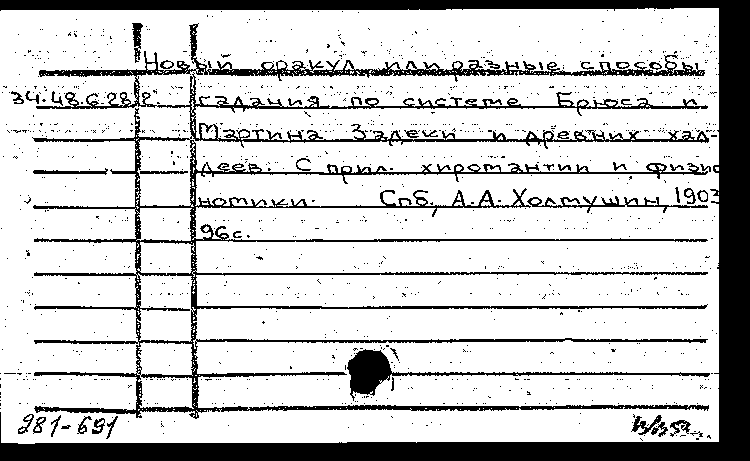 Новый оракул или разные способы
34.48.6.28 гадания по системе Брюса и
Мартина Задеки и древних хал-
деев. С прил. хиромантии и физио
номики. Спб, А.А. Холмушин, 1903
96с.
281-691